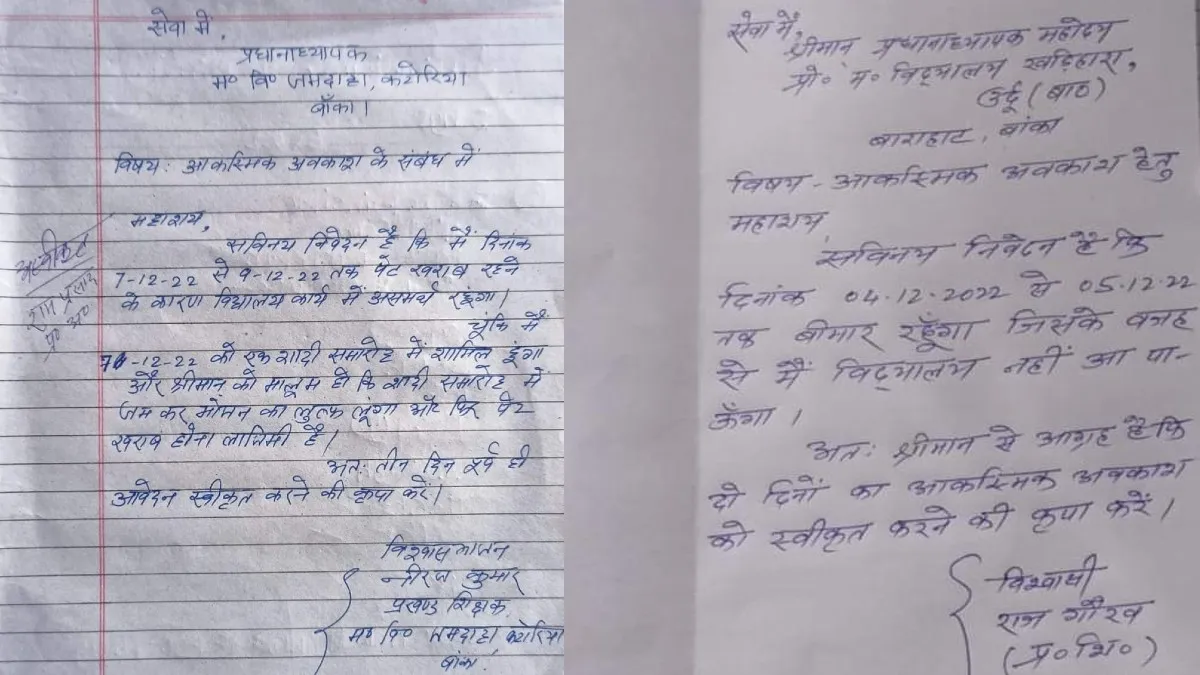 सेवा में,
प्रधानाध्यापक
म० वि० जमदाहा, कटोरिया
बाँका।
विषय: आकस्मिक अवकाश के संबंध में
महाशय,
सविनय निवेदन है कि मैं दिनांक
7-12-22 से 9-12-22 तक पेट खराब रहने
के कारण विद्यालय कार्य में असमर्थ रहूंगा।
चूंकि मैं
-12-22 को एक शादी समारोह में शामिल हूंगा
और श्रीमान को मालूम हो कि शादी समारोह में
जम कर भोजन का लुत्फ लूंगा और फिर पेट
खराब होना लाजिमी है।
अत: तीन दिन पूर्व ही
आवेदन स्वीकृत करने की कृपा करें।
विश्वासभाजन
नीरज कुमार
प्रखण्ड शिक्षक
म० वि० जमदाहा कटोरिया
बांका!
राम प्रसाद
प्र० अ०
सेवा में,
श्रीमान् प्रधानाध्यापक महोदय
प्रो० म० विद्यालय खड़िहारा,
उर्दू (बाठ)
बाराहाट, बांका
विषय - आकस्मिक अवकाश हेतु
महाशय
सविनय निवेदन है कि
दिनांक 04.12.2022 से 05.12.22
तक बीमार रहूँगा जिसके वजह
से मैं विद्यालय नहीं आ पा-
ऊँगा।
अत: श्रीमान से आग्रह है कि
दो दिनों का आकस्मिक अवकाश
को स्वीकृत करने की कृपा करें।
विश्वासी
राज गौरव
(प्र० शि०)